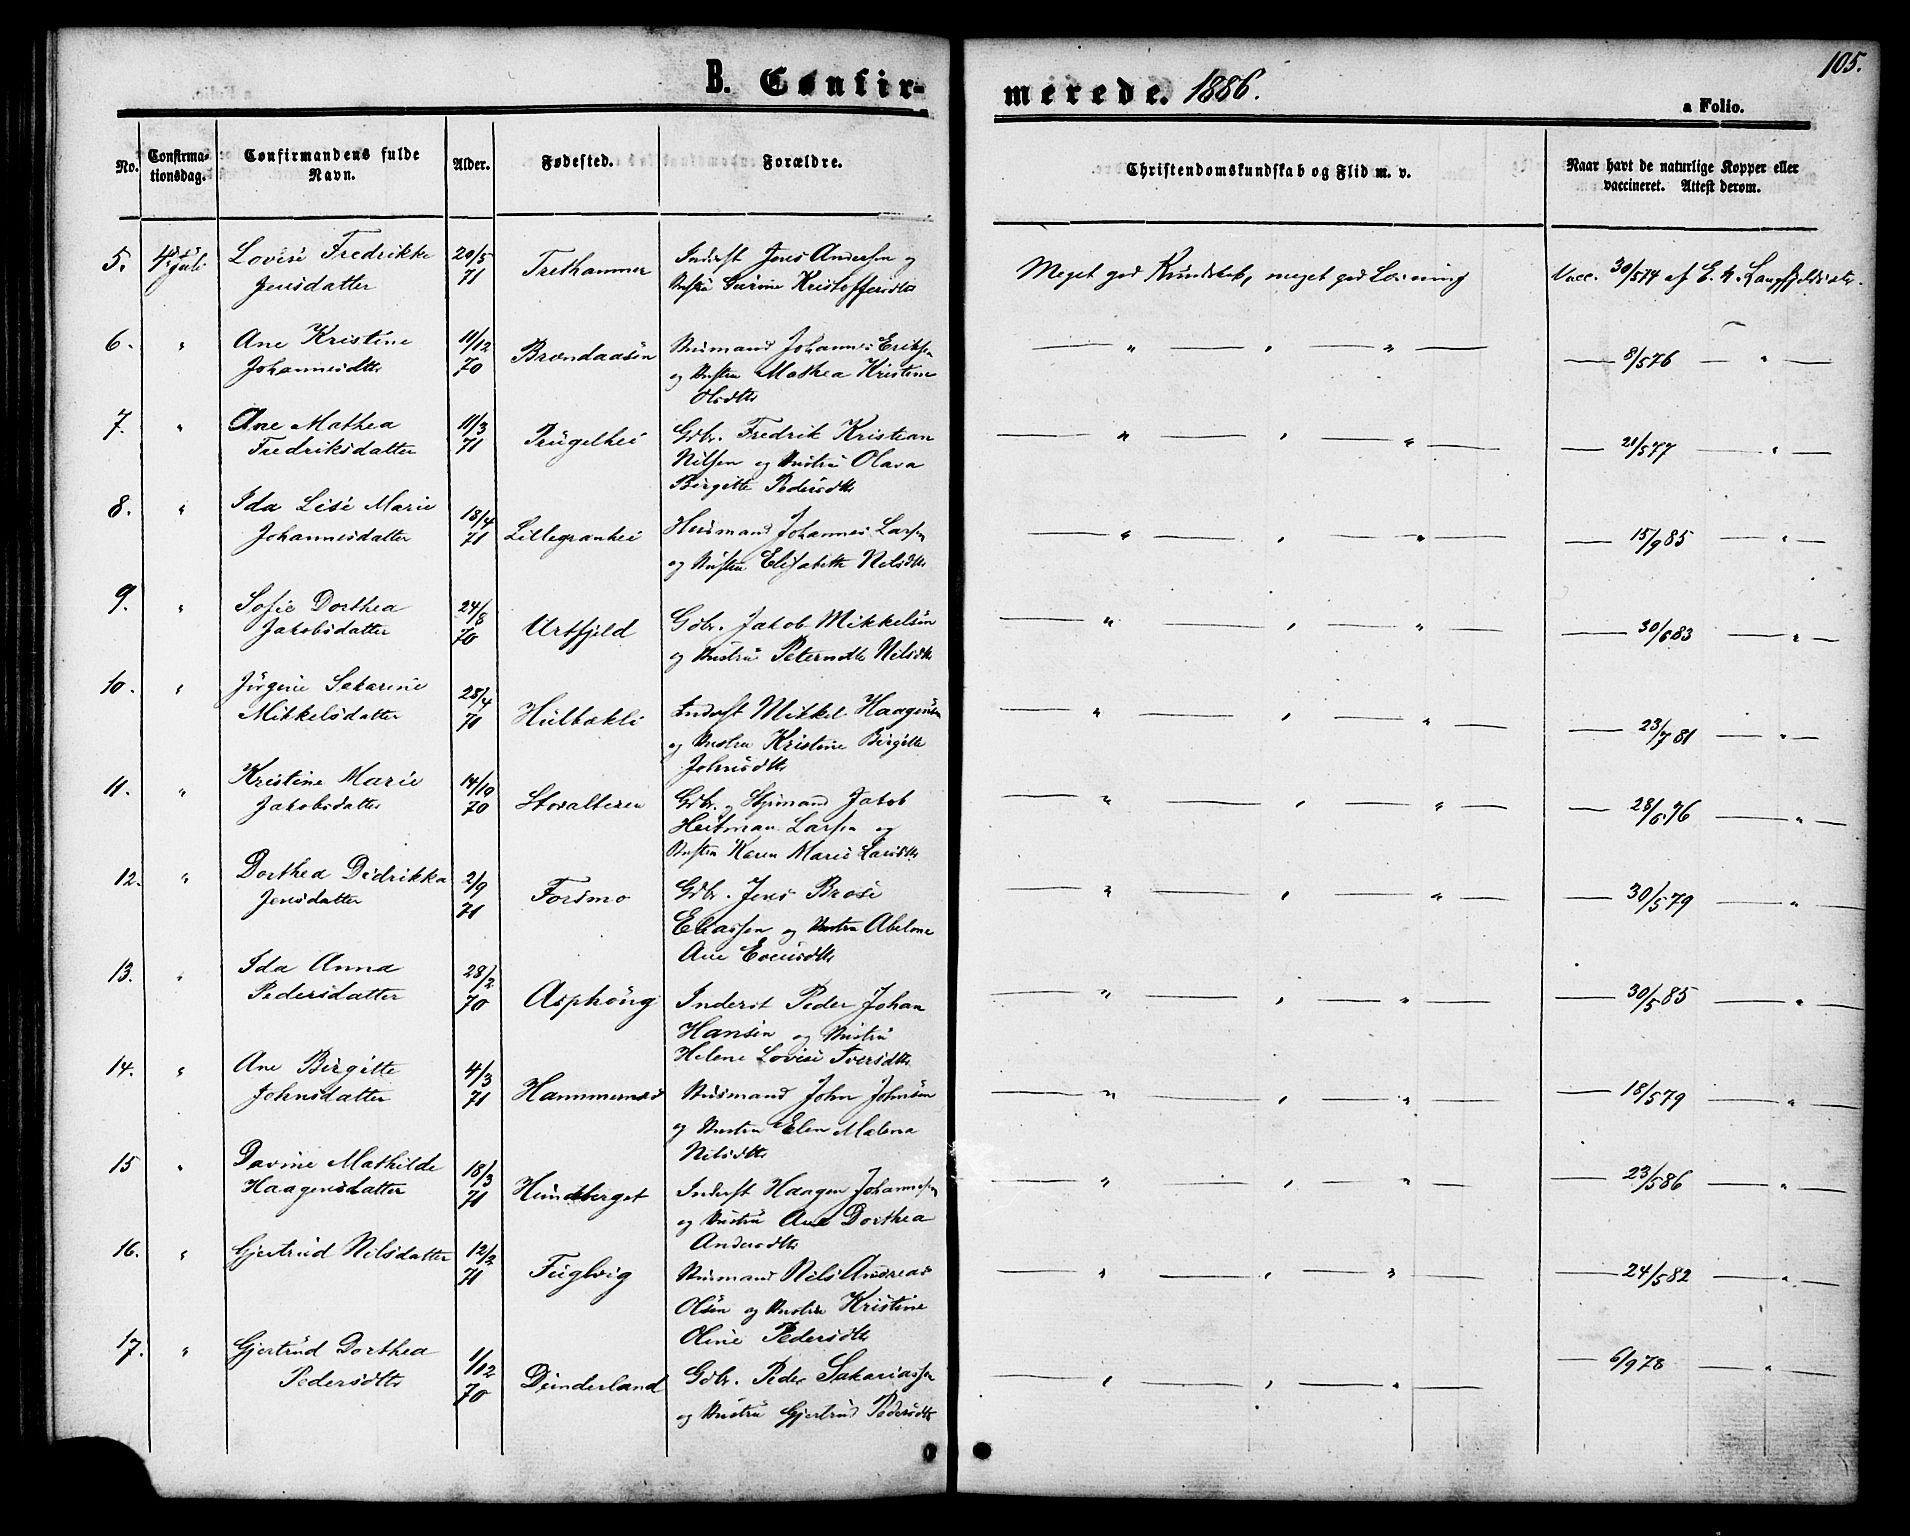 105.
B. Confirmerede. 1886.
a Folio.
No. Confirmationsdag. Confirmandens fulde Navn. Alder. Fødested. Forældre. Christendomskundskab og Flid m. v. Naar havt de naturlige Kopper eller vaccineret. Attest derom.
5. 4. Juli Lovise Fredrikke 20/5 Inderst Jens Andersen og
Jensdatter 71 Trethammer Hustru Kristoffersdtr
Meget god Kundskab, meget god Læsning Vacc. 30/5 74 af E. H. Langfjeldsdtr.
6. " Ane Kristine 11/12 Husmand Johannes Eriksen
Johannesdtr 70 Brændaasen og Hustru Mathea Kristine
Olsdtr
— " — , — " — — 8/5 76 — " —
7. " Ane Mathea 11/3 Gdbr. Fredrik Kristian
Fredriksdatter 71 Nilsen og Hustru Olava
Birgitte Pedersdtr
— " — , — " — — 21/5 77 — " —
8. " Ida Lise Marie 18/4 Husmand Johannes Larsen
Johannesdatter 71 Lillegranhei og Hustru Elisabeth Nilsdtr
— " — , — " — — 15/9 85 — " —
9. " Sofie Dorthea 24/8 Gdbr. Jakob Mikkelsen
Jakobsdatter 70 Urtfjeld og Hustru Nilsdtr
— " — , — " — — 30/6 83 — " —
10. " Jørgine Sakarine 28/4 Inderst Mikkel Haagensen
Mikkelsdatter 71 Hulbækli og Hustru Kristine Birgitte
Johnsdtr
— " — , — " — — 23/7 81 — " —
11. " Kristine Marie 14/10 Gdbr. og Jakob
Jakobsdatter 70 Storalteren Heitman Larsen og
Hustru Karen Marie Larsdtr
— " — , — " — — 28/6 76 — " —
12. " Dorthea Didrikka 2/9 Gdbr. Jens Brose
Jensdatter 71 Forsmo Eliassen og Hustru Abelone
Ane Evensdtr
— " — , — " — — 30/5 79 — " —
13. " Ida Anna 28/2
Pedersdatter 70 Asphoug Inderst Peder Johan
Hansen og Hustru
Helene Lovise Iversdtr
— " — , — " — — 30/5 85 — " —
14. " Ane Birgitte 4/3
Johnsdatter 71 Hammernes Husmand John Johnsen
og Hustru Elen Malena
Nilsdtr
— " — , — " — — 18/5 79 — " —
15 " Davine Mathilde 18/3
Haagensdatter 71 Hundberget Inderst Haagen Johannesen
og Hustru Ane Dorthea
Andersdtr
— " — , — " — — 23/5 86 — " —
16. " Gjertrud Nilsdatter 12/2
71 Fuglvig Husmand Nils Andreas
Olsen og Hustru Kristine
Oline Pedersdtr
— " — , — " — — 24/5 82 — " —
17. " Gjertrud Dorthea 1/12
Pedersdtr 70 Dunderland Gdbr. Peder Sakariassen
og Hustru Gjertrud Pedersdtr
— " — , — " — — 6/9 78 — " —